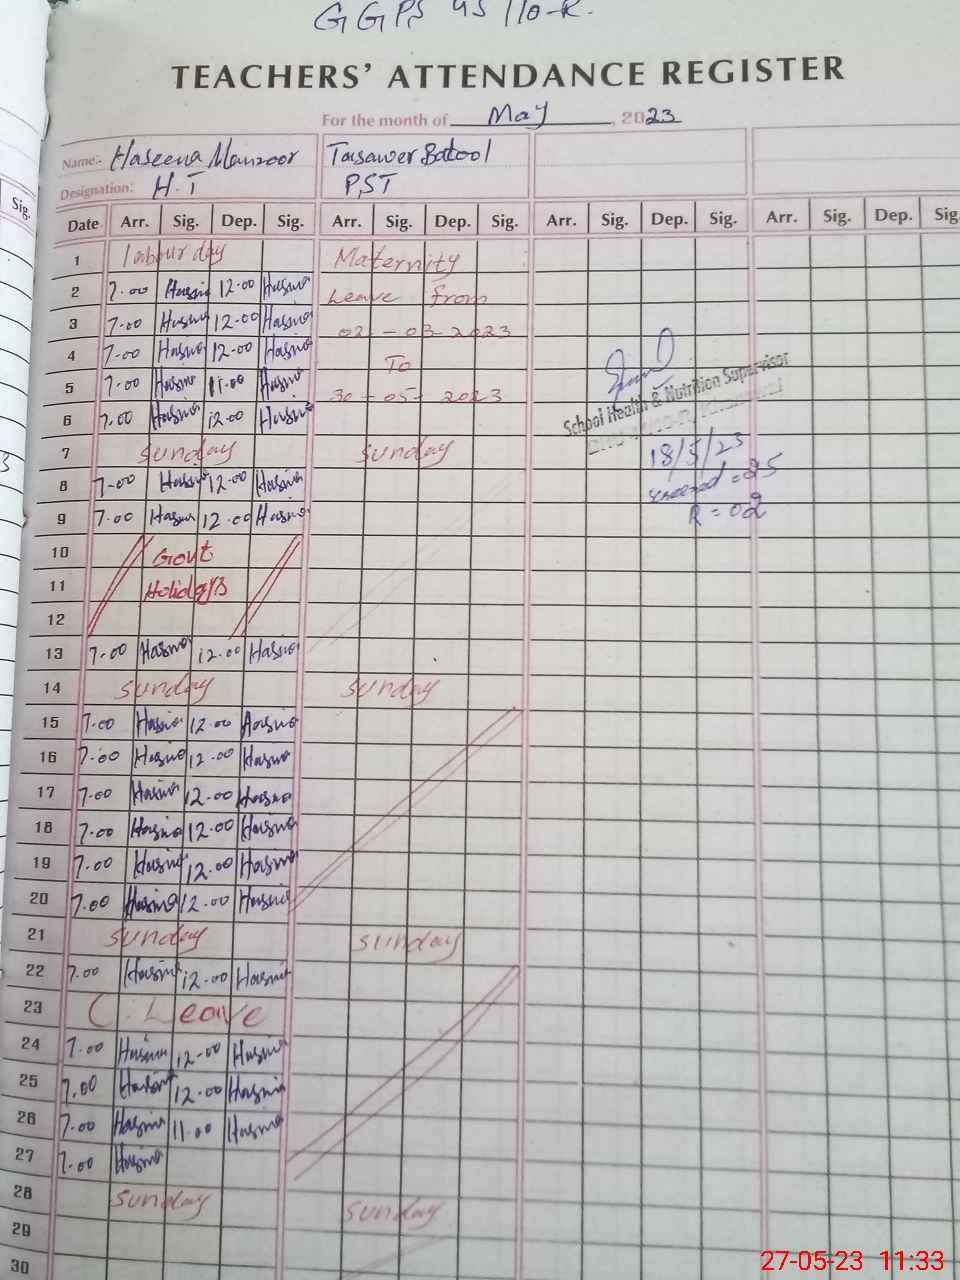 GGPS 45/10-R.
TEACHERS' ATTENDANCE REGISTER
For the month of May, 2023
Name:- Haseena Manzoor Tasawer Batool
Designation: H.T PST
Sig.
Date Arr. Sig. Dep. Sig. Arr. Sig. Dep. Sig. Arr. Sig. Dep. Sig. Arr. Sig. Dep. Sig.
1 labour day Maternity
2 7.00 Hasina 12.00 Hasina Leave from
3 7.00 Hasina 12.00 Hasina 02-03-2023
4 7.00 Hasina 12.00 Hasina To
5 7.00 Hasina 11.00 Hasina 30-05-2023
6 7.00 Hasina 12.00 Hasina
School Health & Nutrition Supervisor
7 sunday sunday
18/5/23
8 7.00 Hasina 12.00 Hasina
screened = 25
9 7.00 Hasina 12.00 Hasina
R = 02
10 Govt
11 Holidays
12
13 7.00 Hasina 12.00 Hasina
14 sunday sunday
15 7.00 Hasina 12.00 Hasina
16 7.00 Hasina 12.00 Hasina
17 7.00 Hasina 12.00 Hasina
18 7.00 Hasina 12.00 Hasina
19 7.00 Hasina 12.00 Hasina
20 7.00 Hasina 12.00 Hasina
21 sunday sunday
22 7.00 Hasina 12.00 Hasina
23 C. Leave
24 7.00 Hasina 12.00 Hasina
25 7.00 Hasina 12.00 Hasina
26 7.00 Hasina 11.00 Hasina
27 7.00 Hasina
28 sunday sunday
29
30
27-05-23 11:33